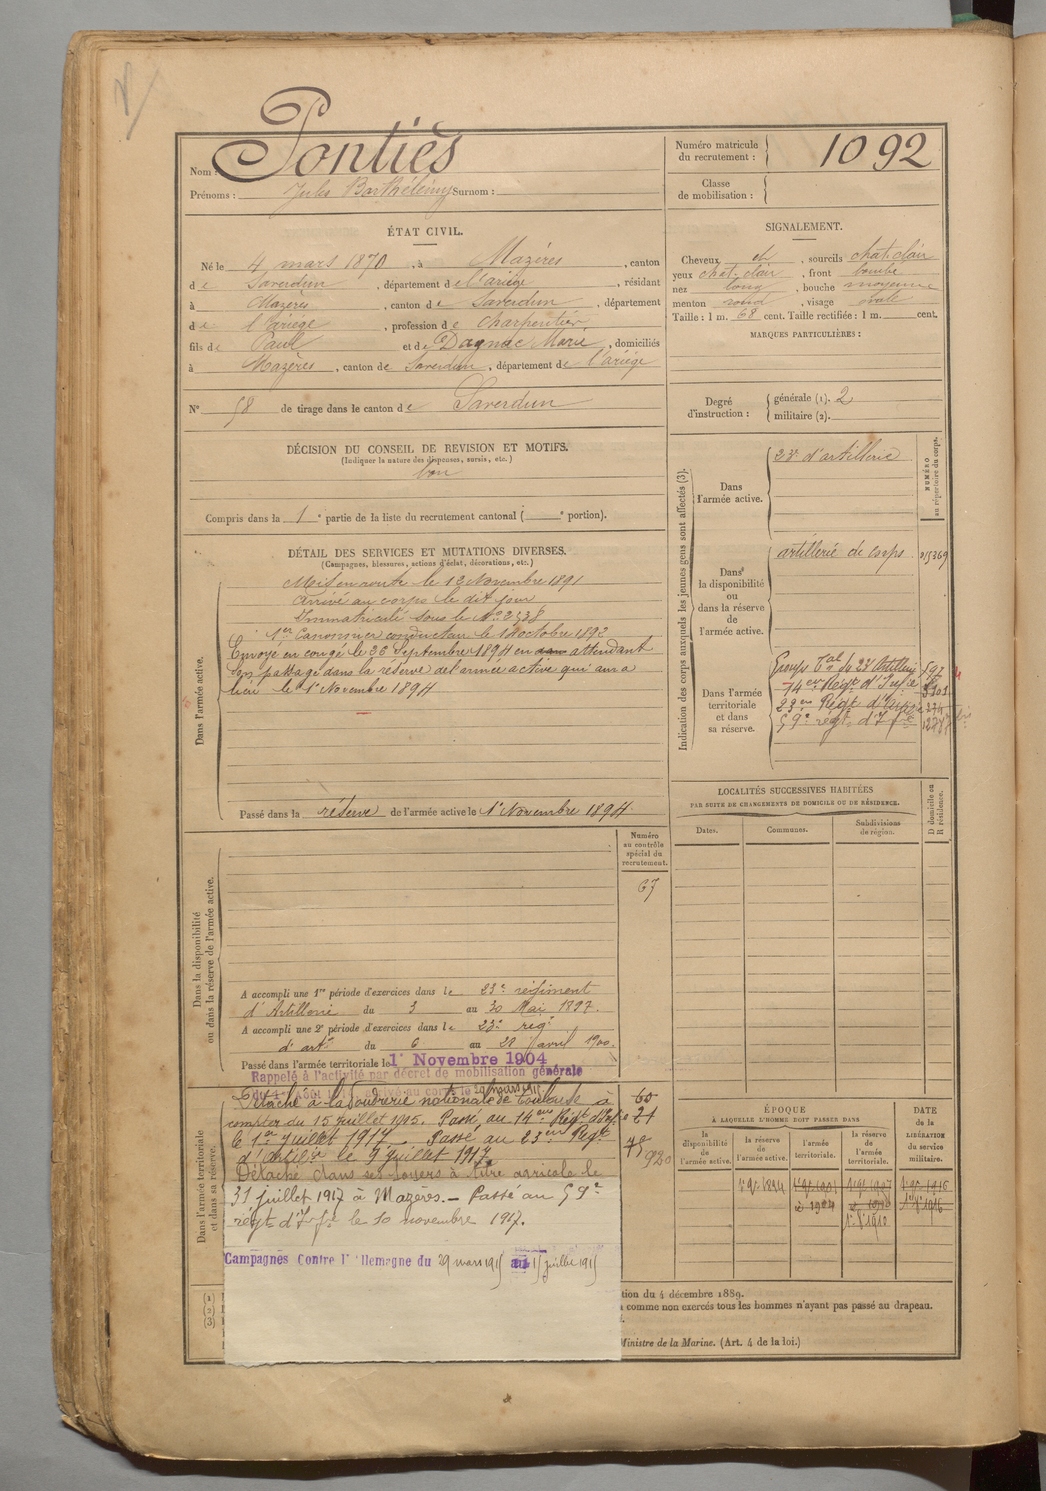 Nom : Pontiès
Prénoms : Jules Barthélemy Surnom :
Numéro matricule du recrutement : 1092
Classe de mobilisation :
ÉTAT CIVIL.
Né le 4 mars 1870, à Mazères, canton
de Saverdun, département de l'ariège, résidant
à Mazères, canton de Saverdun, département
de l'ariège, profession de charpentier
fils de Paul et de Dagnac Marie, domiciliés
à Mazères, canton de Saverdun, département de l'ariège
N° 58 de tirage dans le canton de Saverdun
SIGNALEMENT.
Cheveux ch, sourcils chat. clair
yeux chat. clair, front bombé
nez long, bouche moyenne
menton rond, visage ovale
Taille : 1 m. 68 cent. Taille rectifiée : 1 m. cent.
MARQUES PARTICULIÈRES :
Degré d'instruction : générale (1). 2
militaire (2).
DÉCISION DU CONSEIL DE REVISION ET MOTIFS.
(Indiquer la nature des dispenses, sursis, etc.)
bon
Compris dans la 1e partie de la liste du recrutement cantonal ( e portion).
DÉTAIL DES SERVICES ET MUTATIONS DIVERSES.
(Campagnes, blessures, actions d'éclat, décorations, etc.)
Dans l'armée active.
Mis en route le 12 Novembre 1891
arrivé au corps le dit jour
Immatriculé sous le No 2538
1er Canonnier conducteur le 1 octobre 1892
Envoyé en congé le 26 Septembre 1894 en attendant
son passage dans la réserve de l'armée active qui aura
lieu le 1er Novembre 1894
Passé dans la réserve de l'armée active le 1er Novembre 1894
Indication des corps auxquels les jeunes gens sont affectés (3).
NUMÉRO au répertoire du corps.
Dans l'armée active.
23e d'artillerie
Dans la disponibilité ou dans la réserve de l'armée active.
artillerie de corps
Dans l'armée territoriale et dans sa réserve.
Groupe Tal du 23e Artillerie 597
14e Régt d'Infie
23e Régt d'
59e régt d'Ifie
LOCALITÉS SUCCESSIVES HABITÉES
PAR SUITE DE CHANGEMENTS DE DOMICILE OU DE RÉSIDENCE.
Dates. Communes. Subdivisions de région. D domicile ou R résidence.
Dans la disponibilité ou dans la réserve de l'armée active.
Numéro au contrôle spécial du recrutement.
67
A accompli une 1re période d'exercices dans le 23e régiment
d'Artillerie du 3 au 30 Mai 1897.
A accompli une 2e période d'exercices dans le 23e régt
d'artie du 6 au avril 1900.
Passé dans l'armée territoriale le 1er Novembre 1904
Rappelé à l'activité par décret de mobilisation générale
Dans l'armée territoriale et dans sa réserve.
Détaché à la Poudrerie nationale de Toulouse à
compter du 15 juillet 1915. Passé au 14e Régt d'Infie
le 1er juillet 1917 Passé au 23e Régt
d'Artilie le 9 juillet 1917
Détaché dans ses foyers à titre agricole le
31 juillet 1917 à Mazères. – Passé au 59e
régt d'If ie le 10 novembre 1917.
Campagnes Contre l'Allemagne du 29 mars 1915 au 15 juillet 1915
60
21
920
ÉPOQUE
À LAQUELLE L'HOMME DOIT PASSER DANS
la disponibilité de l'armée active. la réserve de l'armée active. l'armée territoriale. la réserve de l'armée territoriale.
DATE de la LIBÉRATION du service militaire.
1er 9bre 1894
1904
1er 8bre 1910
tion du 4 décembre 1889.
comme non exercés tous les hommes n'ayant pas passé au drapeau.
Ministre de la Marine. (Art. 4 de la loi.)
(1)
(2)
(3)